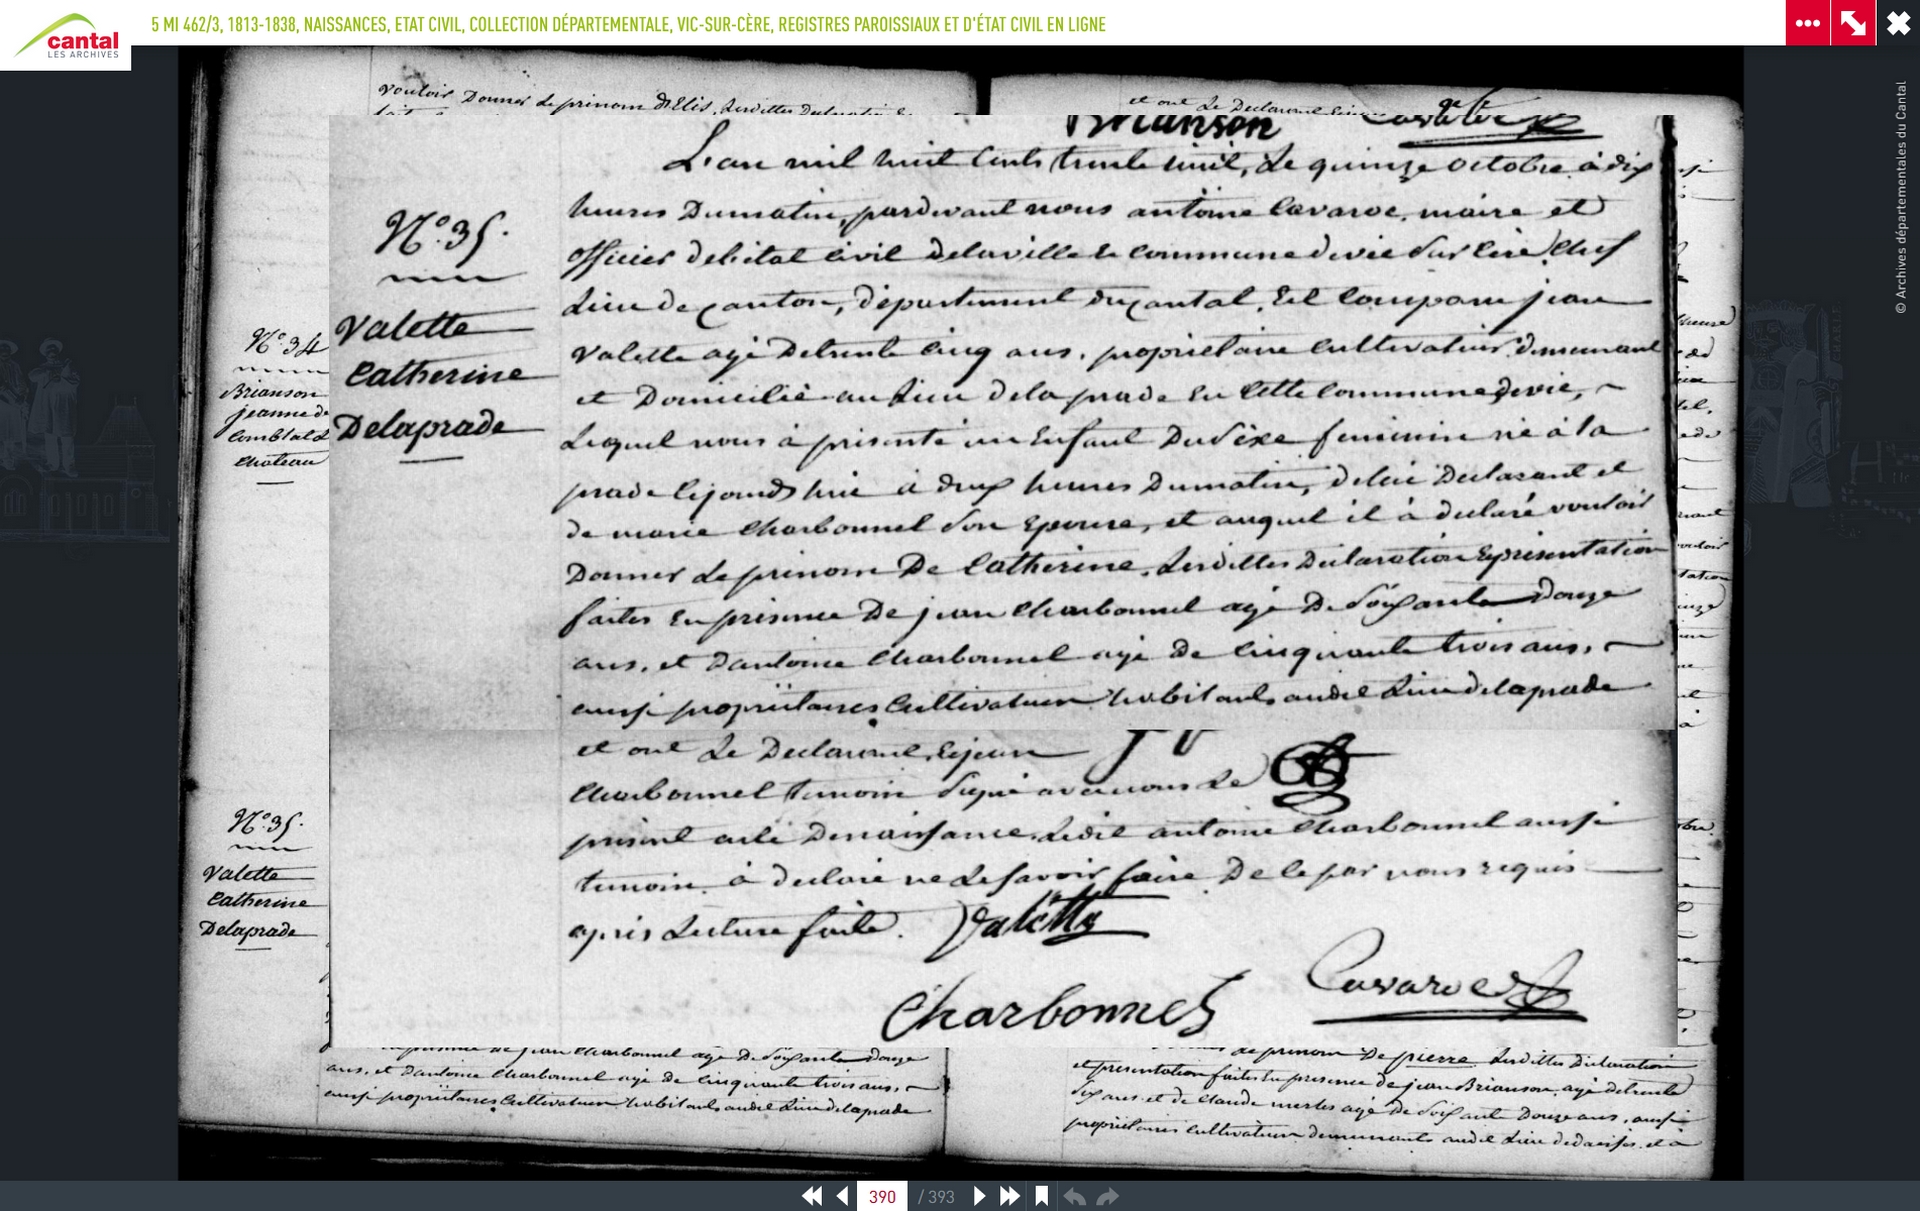 5 MI 462/3, 1813-1838, NAISSANCES, ETAT CIVIL, COLLECTION DÉPARTEMENTALE, VIC-SUR-CÈRE, REGISTRES PAROISSIAUX ET D'ÉTAT CIVIL EN LIGNE
cantal
LES ARCHIVES
© Archives départementales du Cantal
vouloir Donner le prénom d'Elis, lesdittes Déclaration
et ont le Declarant
Brianson
N°. 34
Brianson
jeanne de
Comblat le
Chateau
N°. 35.
Valette
Catherine
Delaprade
L'an mil huit cents trente huit, Le quinze octobre à dix
heures Du matin, pardevant nous antoine Cavaroc, maire et
officier de l'etat civil de la ville et commune de vic sur Cère, chef
Lieu de canton, département du cantal, Est comparu jean
valette agé De trente cinq ans, propriétaire cultivateur demeurant
et Domicilié au Lieu de la prade en Cette commune de vic,
Lequel nous à présenté un Enfant Du Sèxe féminin né à la
prade cejourd'hui à deux heures Du matin, de lui Declarant et
de marie Charbonnel son Epouse, et auquel il à déclaré vouloir
Donner le prénom De Catherine, Lesdittes Déclaration Et présentation
faites En présence De jean Charbonnel agé De Soixante Douze
ans, et d'antoine Charbonnel agé de cinquante trois ans,
aussi propriétaires Cultivateurs habitants audit Lieu delaprade
et ont Le Declarant, Et jean
Charbonnel temoin Signé avec nous Le
présent acte De naissance, Ledit antoine Charbonnel aussi
temoin à déclaré ne Le savoir faire De Ce par nous requis
après Lecture faite. Valette
Charbonnel
Cavaroc
N°. 35.
Valette
Catherine
Delaprade
présence De jean Charbonnel agé De Soixante Douze
ans, et d'antoine Charbonnel agé de cinquante trois ans,
aussi propriétaires Cultivateurs habitants audit Lieu delaprade
le prénom De pierre Lesdittes Déclaration
et présentation faites En présence de jean Brianson, agé de trente
Six ans et de Claude mertes agé De Soixante Douze ans, aussi
propriétaires cultivateurs demeurants audit Lieu
390
/ 393